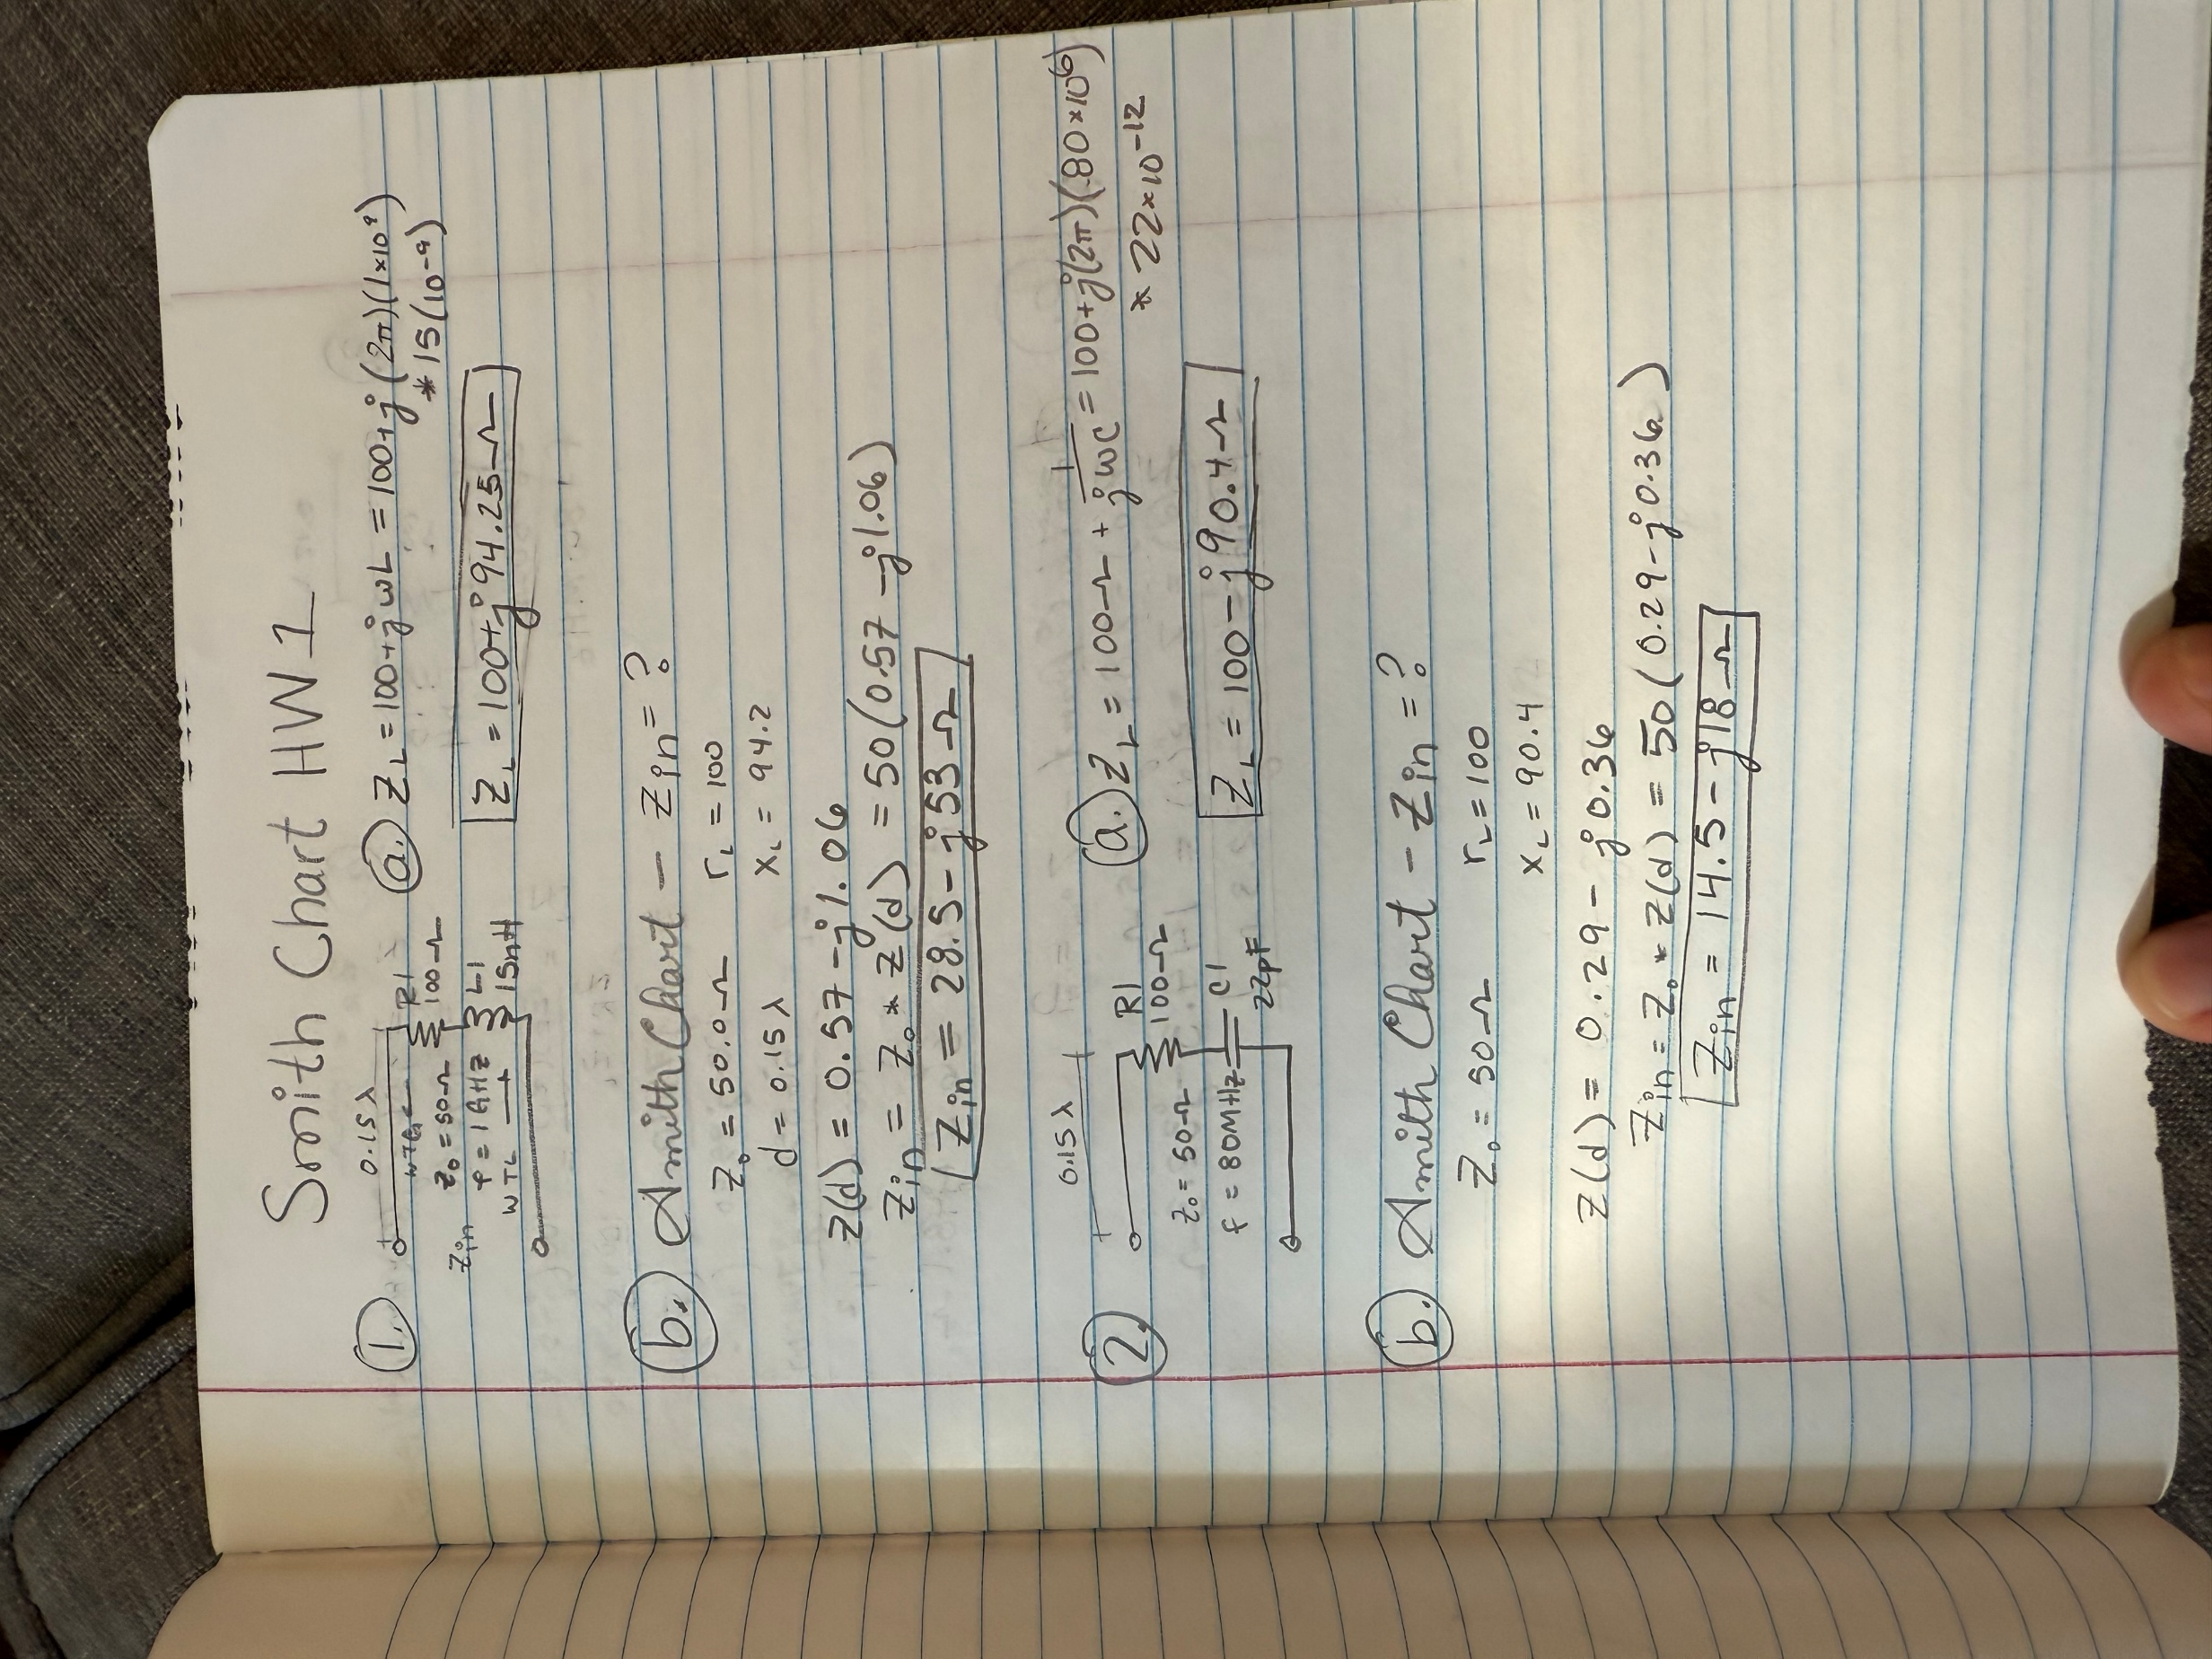 Smith Chart HW 1
1. 0.15λ
WTG
Zin
Z₀ = 50Ω
f = 1GHz
WTL
R1
100Ω
L1
15nH
a. Z_L = 100 + jωL = 100 + j(2π)(1×10⁹)
* 15(10⁻⁹)
Z_L = 100 + j94.25Ω
b. Smith Chart - Zin = ?
Z₀ = 50.0Ω r_L = 100
d = 0.15λ x_L = 94.2
Z(d) = 0.57 - j1.06
Zin = Z₀ * Z(d) = 50(0.57 - j1.06)
Zin = 28.5 - j53Ω
2. 0.15λ
Z₀ = 50Ω
f = 80MHz
R1
100Ω
C1
22pF
a. Z_L = 100Ω + 1/jωC = 100 + j(2π)(80×10⁶)
* 22×10⁻¹²
Z_L = 100 - j90.4Ω
b. Smith Chart - Zin = ?
Z₀ = 50Ω r_L = 100
x_L = 90.4
Z(d) = 0.29 - j0.36
Zin = Z₀ * Z(d) = 50(0.29 - j0.36)
Zin = 14.5 - j18Ω